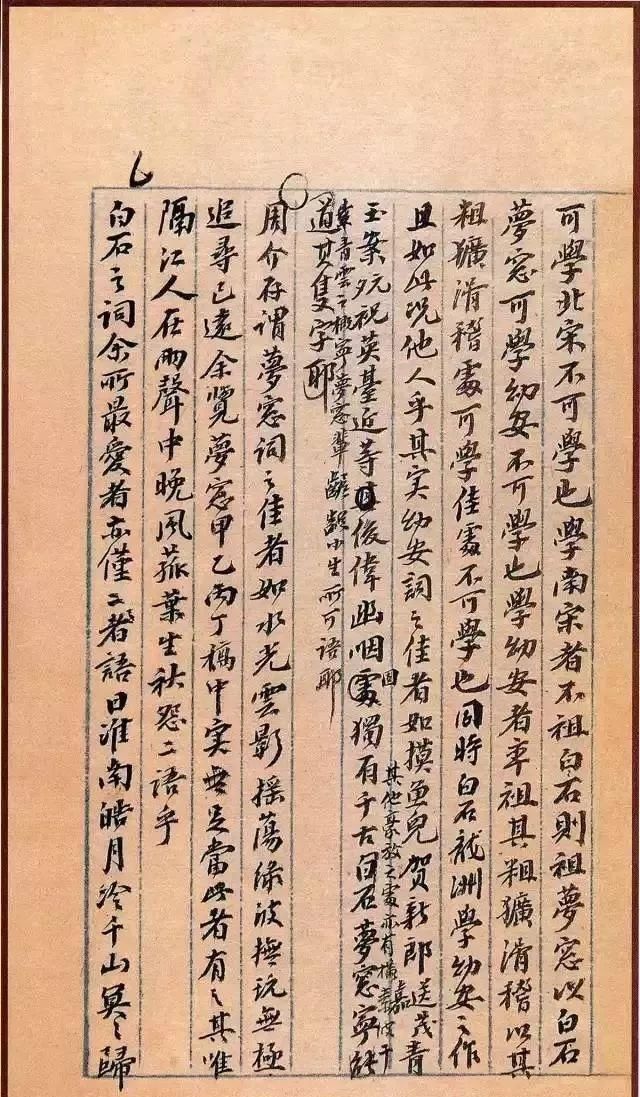 可學北宋不可學也學南宋者不祖白石則祖夢窓以白石
夢窓可學幼安不可學也學幼安者率祖其粗獷滑稽以其
粗獷滑稽處可學佳處不可學也同時白石龍洲學幼安之作
且如此况他人乎其实幼安詞之佳者如摸魚兒賀新郎送茂嘉青
玉案祝英臺近等俊偉幽咽固獨有千古白石夢窓寧能
其他豪放之處亦有橫素波干
青雲之概寧夢窓輩齷齪小生所可語耶
道其隻字耶
周介存謂夢窓詞之佳者如水光雲影搖蕩綠波撫玩無極
追尋已遠余覽夢窓甲乙丙丁稿中实無足當此者有之其唯
隔江人在雨聲中晚風菰葉生秋怨二語乎
白石之詞余所最愛者亦僅二語曰淮南皓月冷千山冥之歸